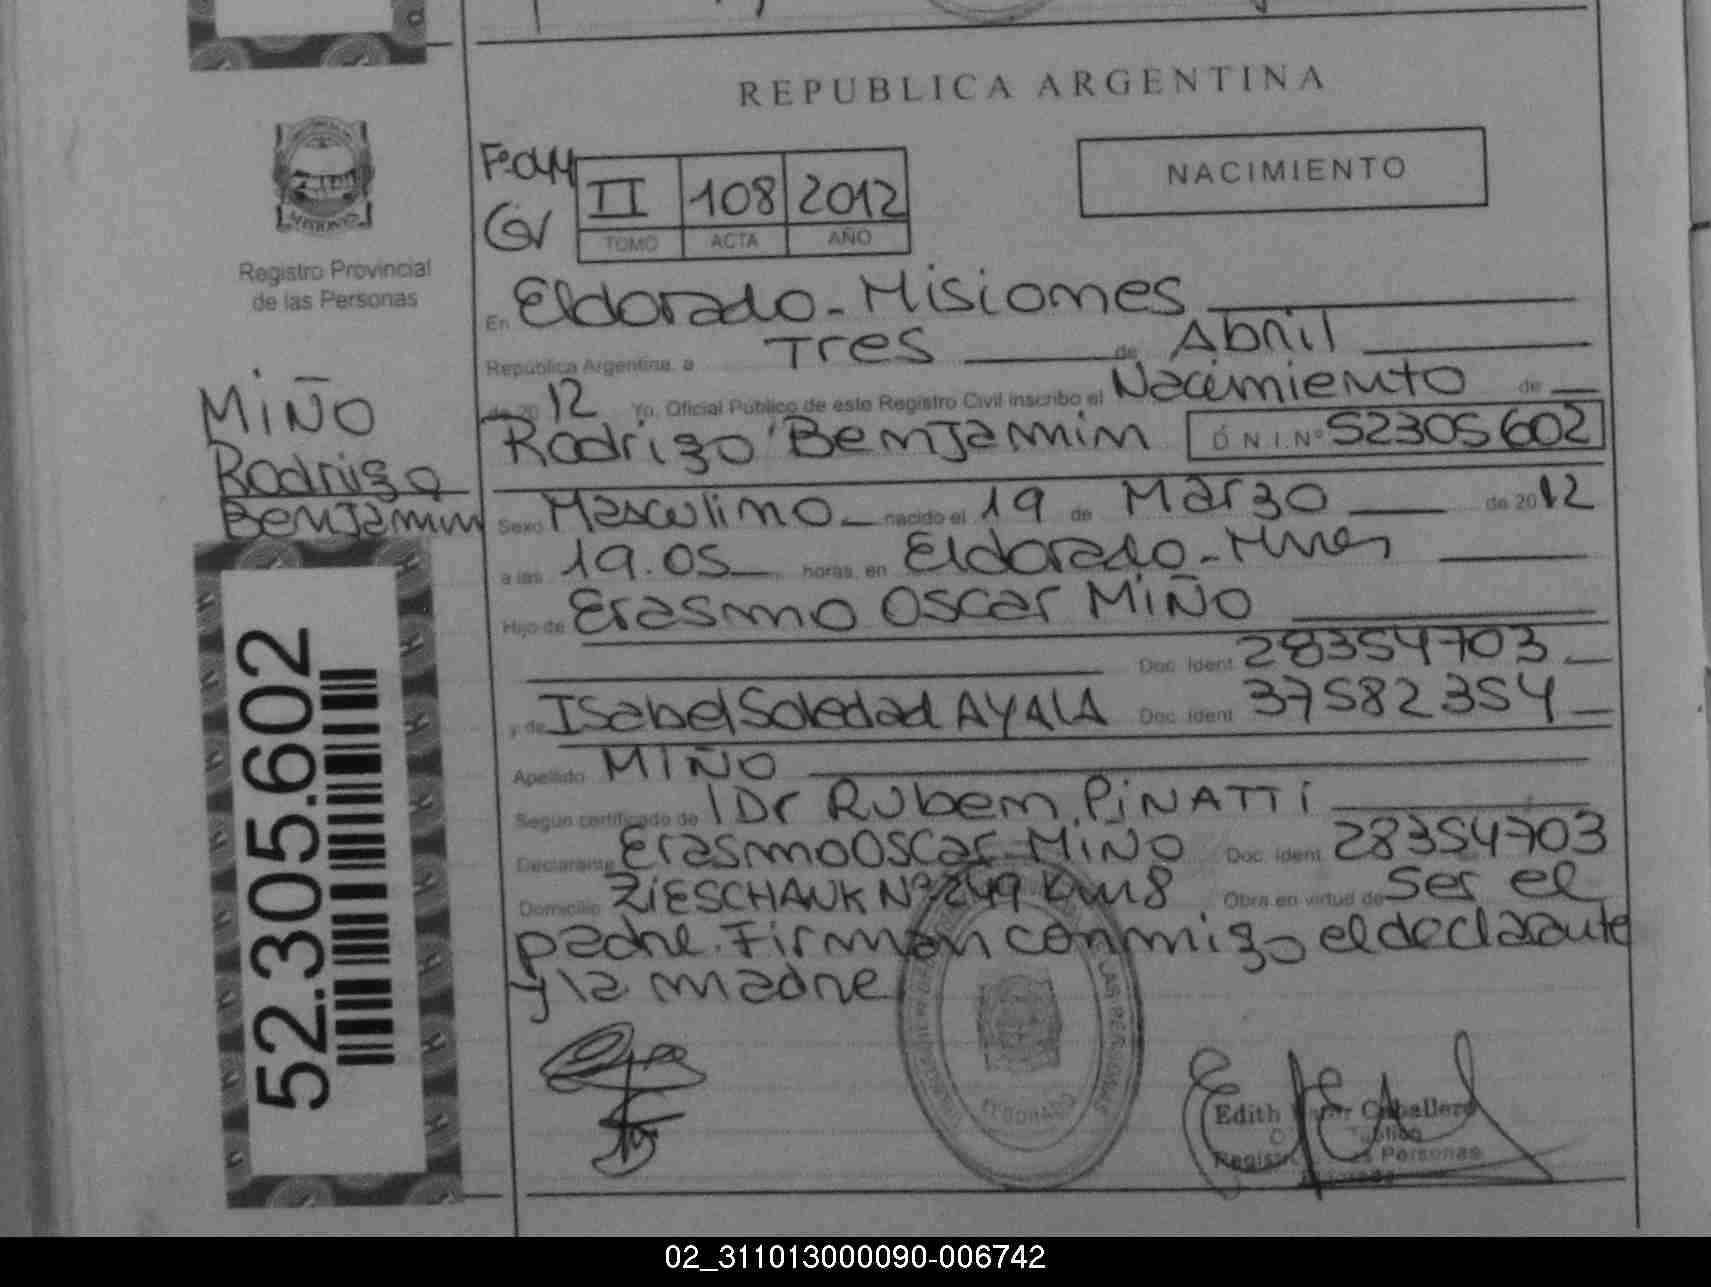 REPUBLICA ARGENTINA
NACIMIENTO
Fº 044
II 108 2012
TOMO ACTA AÑO
MISIONES
Registro Provincial
de las Personas
En Eldorado - Misiones
República Argentina, a Tres de Abril
de 2012 Yo, Oficial Público de este Registro Civil inscribo el Nacimiento de
Rodrigo Benjamin D.N.I.Nº 52305602
MIÑO
Rodrigo
Benjamin
Sexo Masculino nacido el 19 de Marzo de 2012
a las 19.05 horas, en Eldorado - Mnes
Hijo de Erasmo Oscar MIÑO
Doc. Ident. 28354703
y de Isabel Soledad AYALA Doc. Ident. 37582354
Apellido MIÑO
Según certificado de Dr Ruben PiNATTi
Declarante Erasmo Oscar MiÑO Doc. Ident. 28354703
Domicilio ZiESCHANK Nº 249 Km 8 Obra en virtud de Ser el
padre. Firman conmigo el declarante
y la madre
52.305.602
ELDORADO
Edith Caballero
Público
Personas
02_311013000090-006742